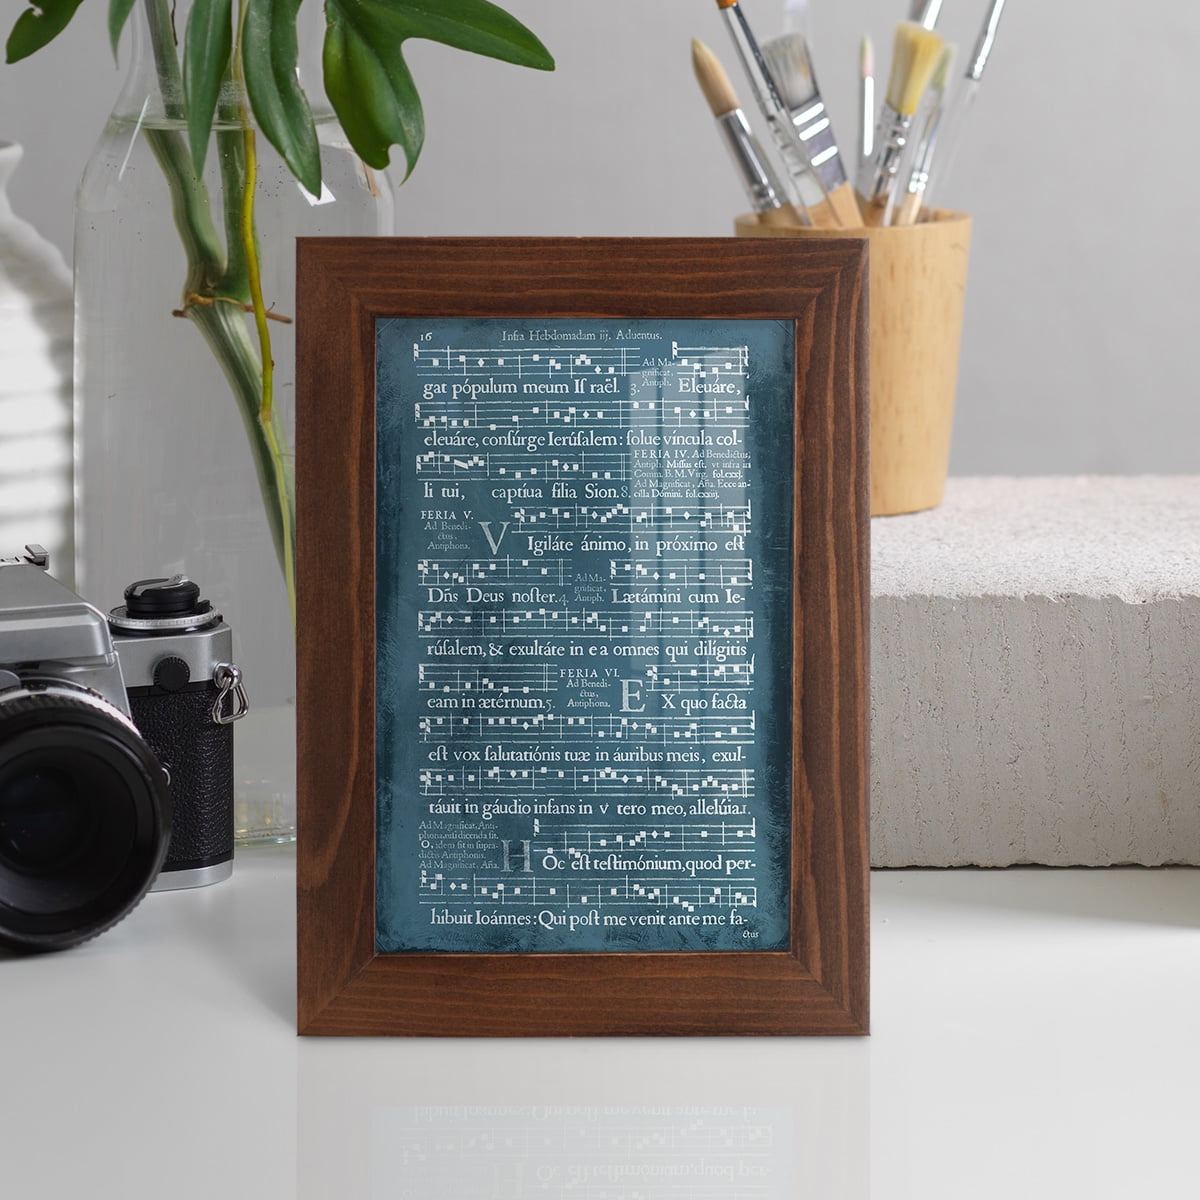 16 Infra Hebdomadam iij. Aduentus.
Ad Ma-
gnificat,
Antiph.
gat pópulum meum Iſ raël. 3. Eleuáre,
eleuáre, conſúrge Ierúſalem: ſolue víncula col-
FERIA IV. Ad Benedictus,
Antiph. Miſſus eſt, vt infra in
Comm. B. M. Virg. fol.xxxj.
Ad Magnificat, Aña. Ecce an-
cilla Dómini. fol.cxxij.
li tui, captíua filia Sion. 8.
FERIA V.
Ad Benedi-
ctus,
Antiphona.
V Igiláte ánimo, in próximo eſt
Ad Ma-
gnificat,
Antiph.
Dñs Deus noſter. 4. Lætámini cum Ie-
rúſalem, & exultáte in e a omnes qui dilígitis
FERIA VI.
Ad Benedi-
ctus,
Antiphona.
eam in ætérnum. 5. E X quo facta
eſt vox ſalutatiónis tuæ in áuribus meis, exul-
táuit in gáudio infans in v tero meo, allelúia. 1.
Ad Magnificat, Anti-
phona, niſi dicenda ſit.
O, idem fit in ſupra-
dictis Antiphonis.
Ad Magnificat, Aña.
H Oc eſt teſtimónium, quod per-
hibuit Ioánnes: Qui poſt me venit ante me fa-
ctus